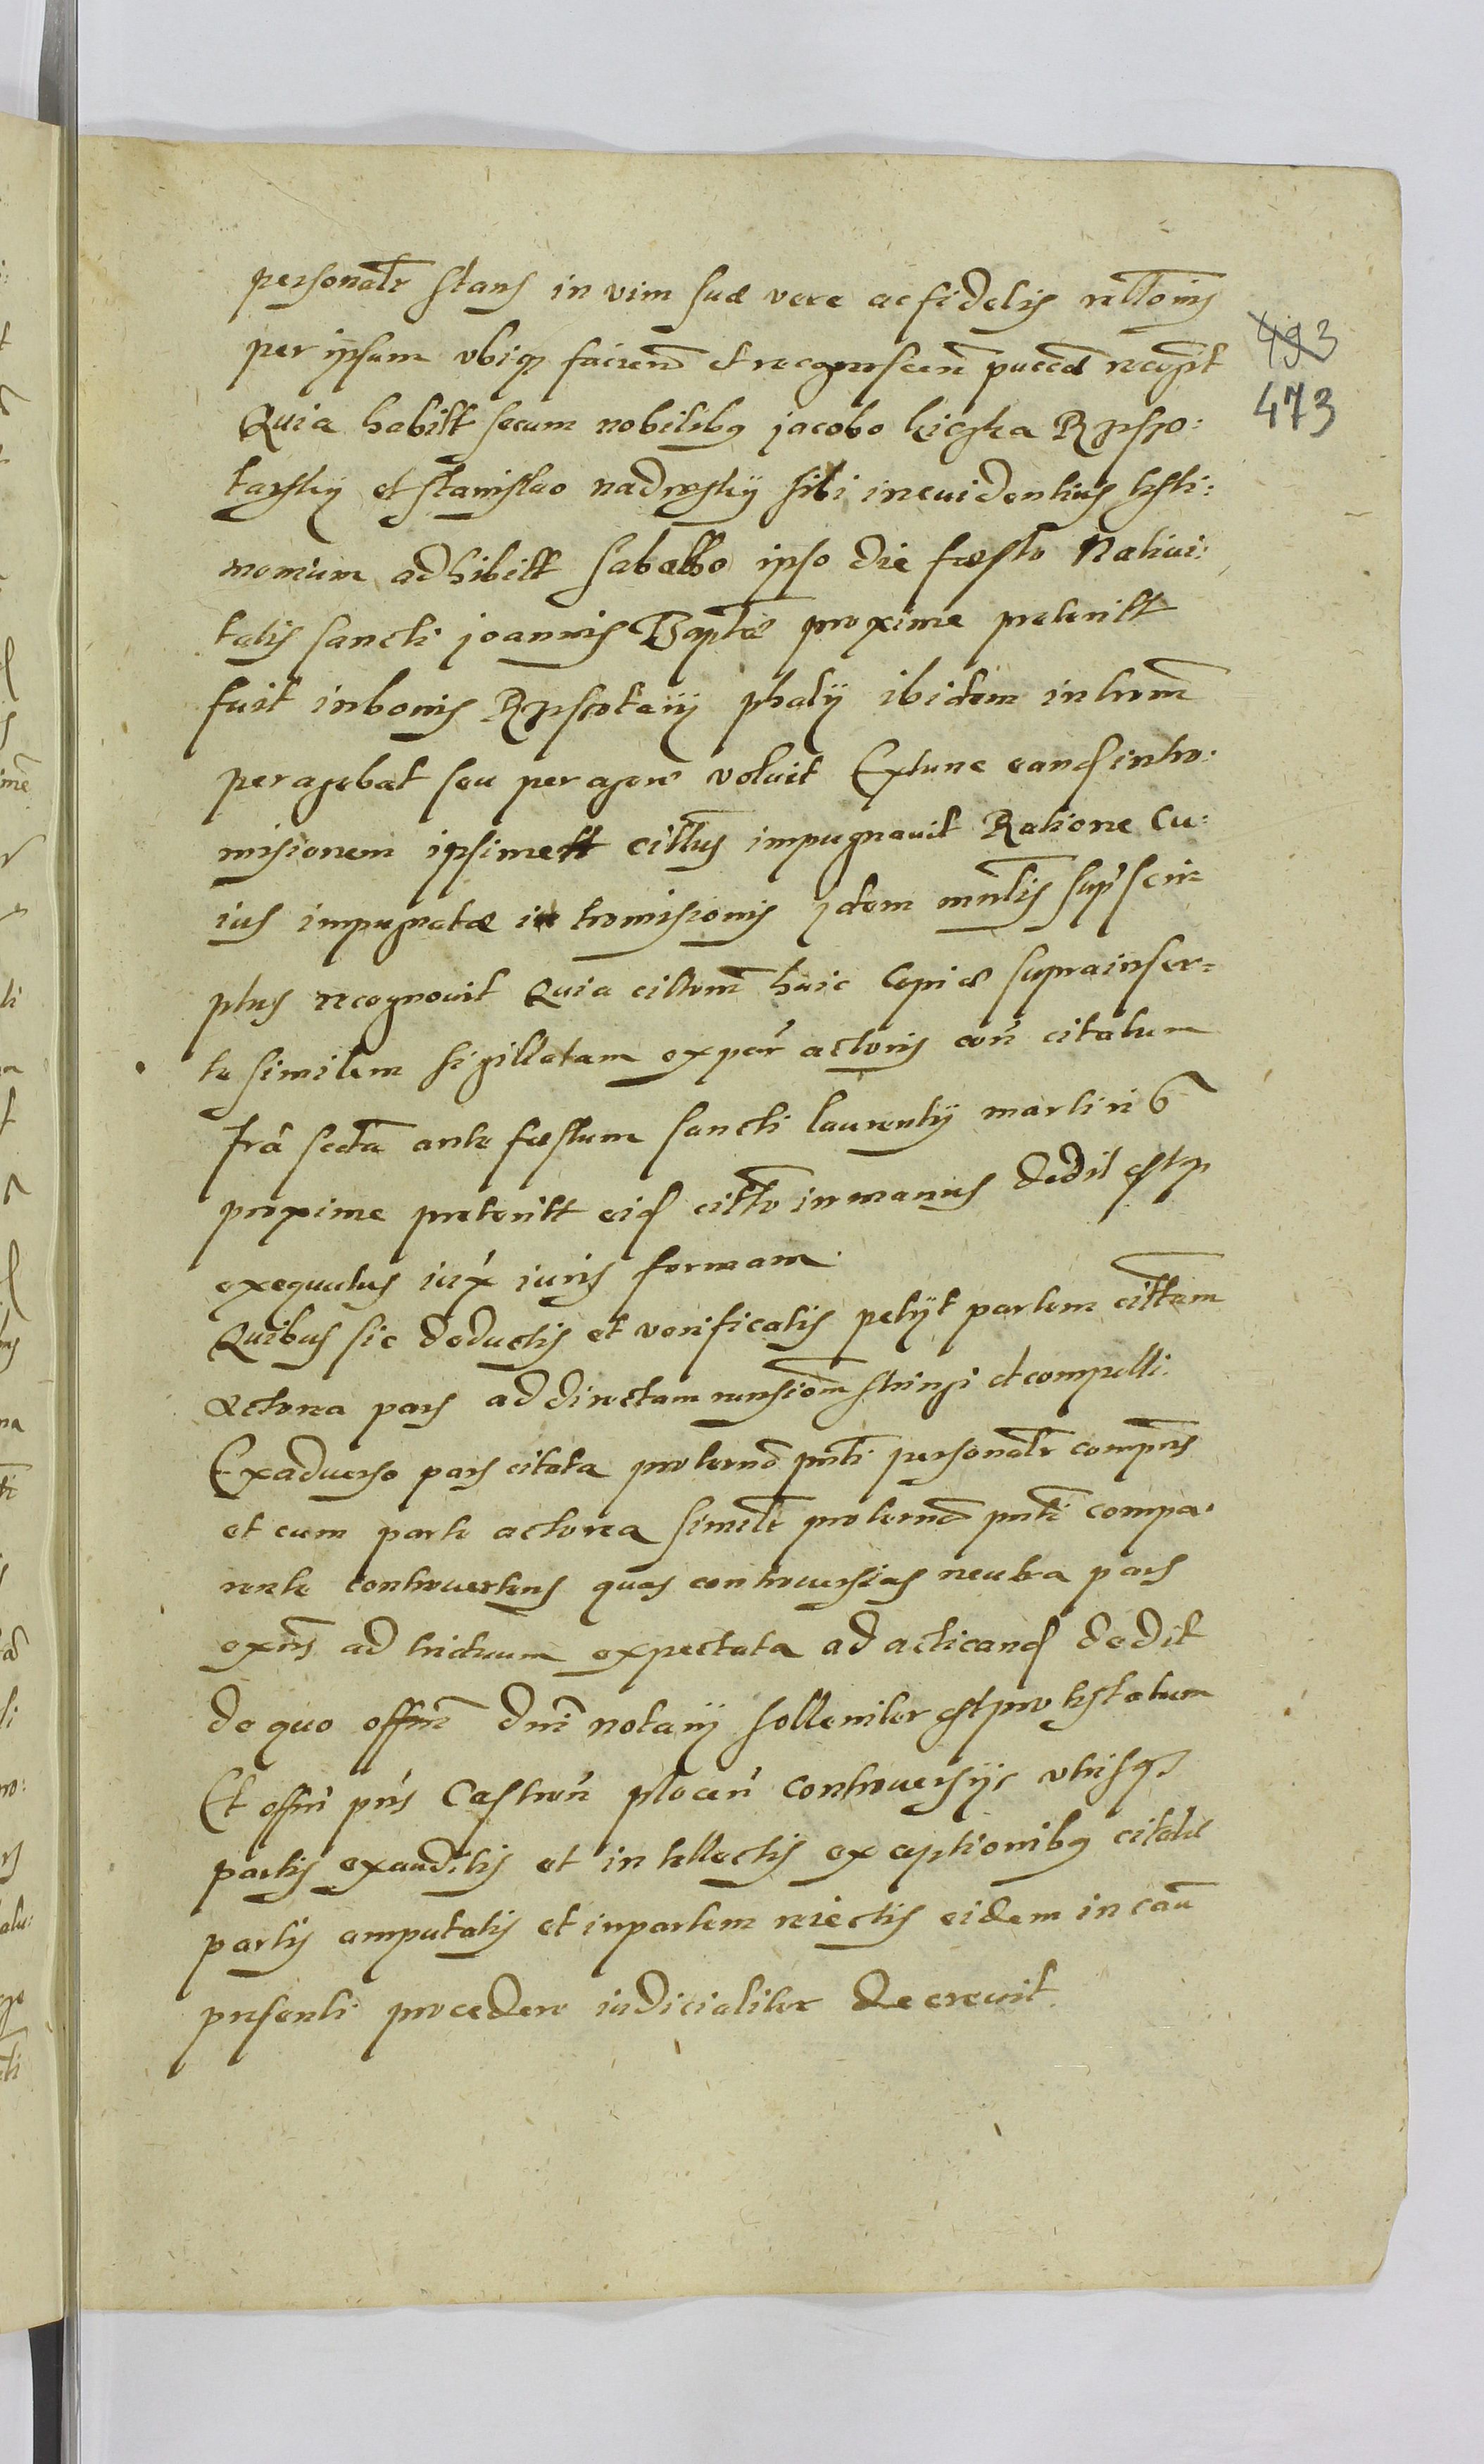 personatr stans in vim suæ vere ac fidelis relltonis
per ipsum vbiq faciend et recognoscen pucta recogit
Quia habitt secum nobilibq jacobo kicjka
tarskij et stanislao nadroskij sibi ineuidentius testi:
monium adhibitt sabatho ipso die fæsto Natiui:
tatis sancti joannis Baptæ proxime preteritt
fuit inbonis phalij ibidem introm
peragebat seu peragere voluit Extunc eand intro:
misionem ipsimett cittus impugnauit Ratione Cu:
ius impugnatæ intromisionis jdem mnlis supscri=
ptus recognouit Quia cittom huic Copiæ suprainser=
te similem sigillatam expar actoris con citatum
fra secda ante fæstum sancti laurentij martiri
proxime preteritt eid citto inmanus dedit estq
exequutus iux iuris formam
Quibus sic deductis et verificatis petijt partem cittam
actorea pars addirectam rensiom stringi et compelli.
Exaduerso pars citata proternd pnti personatr compns
et cum parte actorea similr proternd pnti compa:
rente controuertens quas controuersias neutra pars
exns ad triduum expectata ad acticand dedit
de quo offm dni notarij solleniter estprotestatum
Et offm pns Castren plocen controuersijs vtrisqz
partis exauditis et intellectis exceptionibq citatæ
partis amputatis et inpartem reiectis eidem in cau
presenti procedere iudicialiter decreuit.
493
473